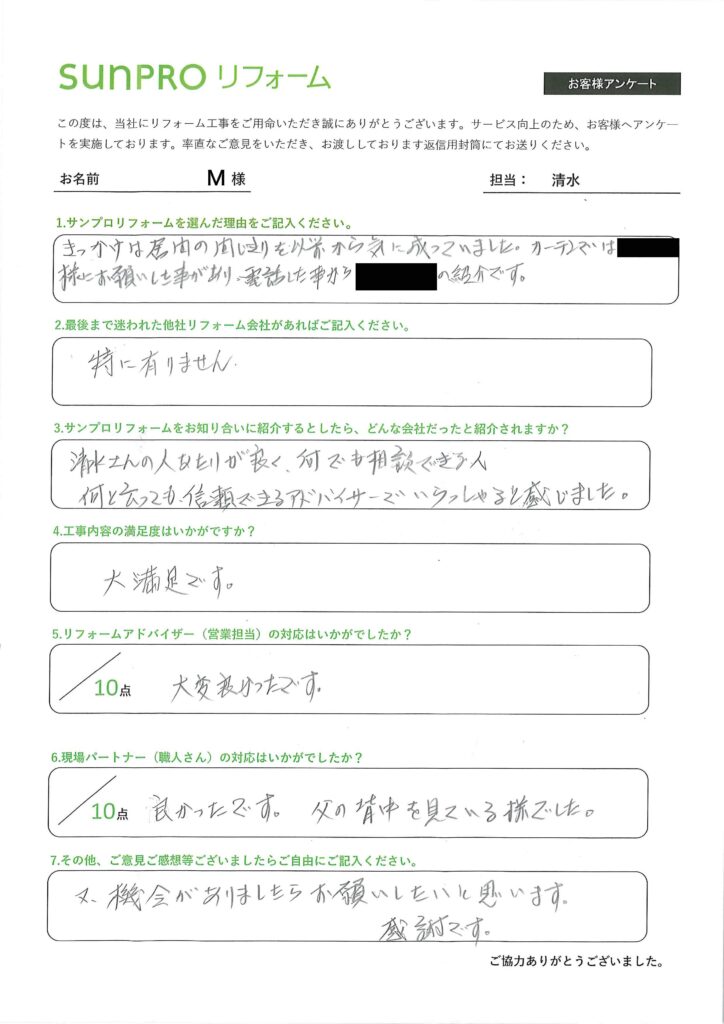 sunPRO リフォーム
お客様アンケート
この度は、当社にリフォーム工事をご用命いただき誠にありがとうございます。サービス向上のため、お客様へアンケー
トを実施しております。率直なご意見をいただき、お渡ししております返信用封筒にてお送りください。
お名前 M 様 担当： 清水
1.サンプロリフォームを選んだ理由をご記入ください。
きっかけは居間の間じ切りを以前から気に成っていました。カーテンでは
様にお願いした事があり、電話した事から の紹介です。
2.最後まで迷われた他社リフォーム会社があればご記入ください。
特に有りません.
3.サンプロリフォームをお知り合いに紹介するとしたら、どんな会社だったと紹介されますか？
清水さんの人あたりが良く、何でも相談できる人
何と云っても、信頼できるアドバイサーでいらっしゃると感じました。
4.工事内容の満足度はいかがですか？
大満足です。
5.リフォームアドバイザー（営業担当）の対応はいかがでしたか？
/10点 大変良かったです。
6.現場パートナー（職人さん）の対応はいかがでしたか？
/10点 良かったです。 父の背中を見ている様でした。
7.その他、ご意見ご感想等ございましたらご自由にご記入ください。
又、機会がありましたらお願いしたいと思います。
感謝です。
ご協力ありがとうございました。